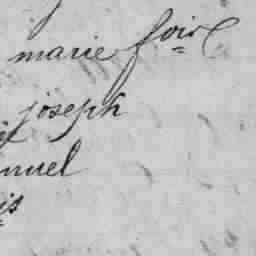 marie fois
joseph
nuel
is